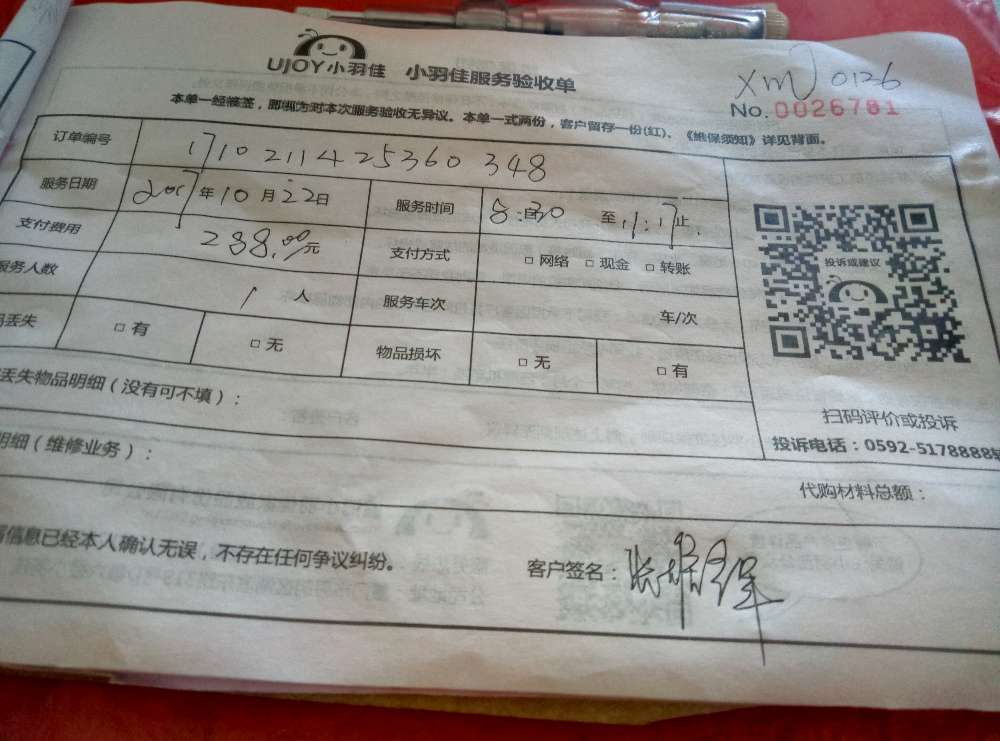 UJOY小羽佳 小羽佳服务验收单
XM 0126
No.0026781
本单一经被签，即视为对本次服务验收无异议。本单一式两份，客户留存一份(红)、《维保须知》详见背面。
订单编号 171021142536 0348
服务日期 2017年10月22日 服务时间 8:30 至 11:17止.
支付费用 238.00元 支付方式 □网络 □现金 □转账
服务人数 1 人 服务车次 车/次
丢失 □有 □无 物品损坏 □无 □有
投诉或建议
丢失物品明细（没有可不填）：
扫码评价或投诉
投诉电话：0592-5178888
明细（维修业务）：
代购材料总额：
信息已经本人确认无误，不存在任何争议纠纷。
客户签名：